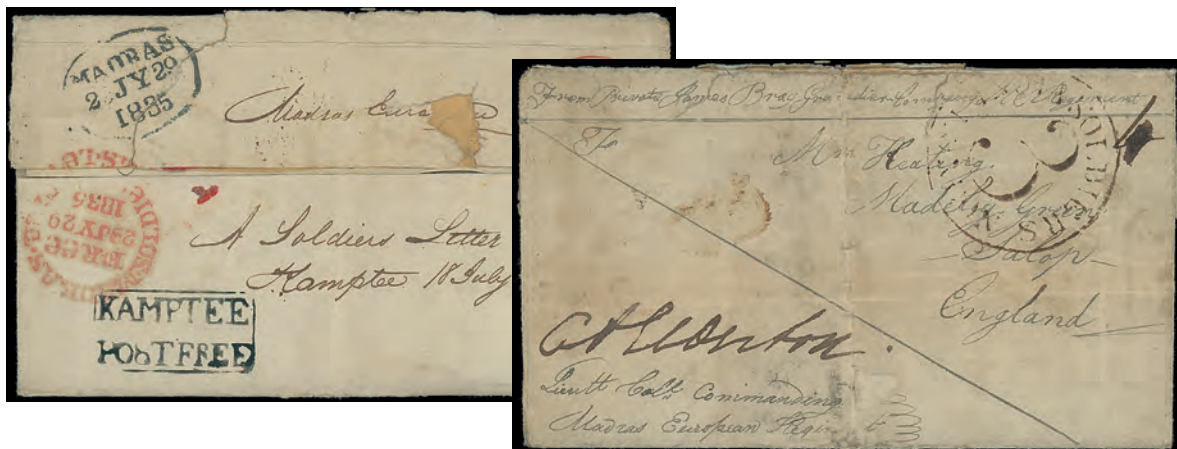 MADRAS
2 JY 29
1835
Madras
FREE
29 JY 29
1835
A Soldiers Letter
Kamptee 18 July
KAMPTEE
POST FREE
From Private James Bray Grenadier Company M E Regiment
To
Mrs Keating
Madeley Green
Salop
England
SOLDIERS
Lieutt Coll Commanding
Madras European Regi